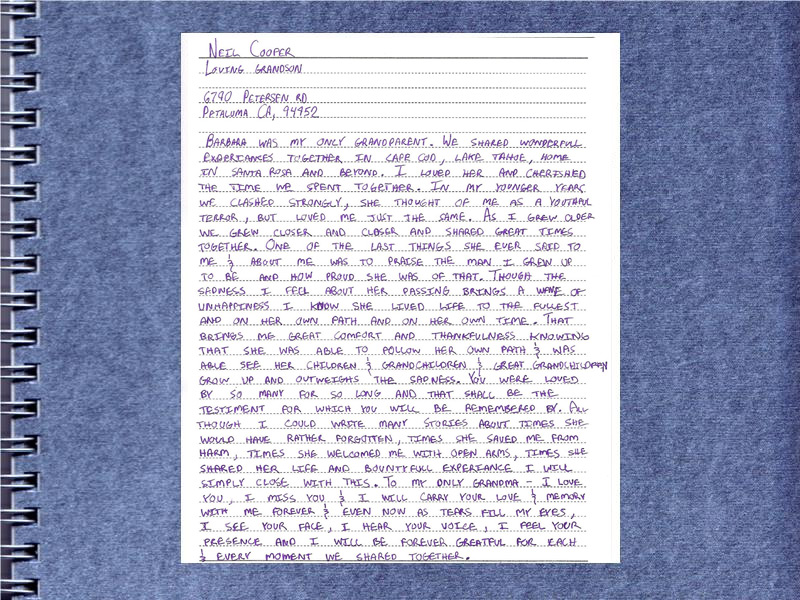 NEIL COOPER
LOVING GRANDSON
6790 PETERSEN RD
PETALUMA CA, 94952
BARBARA WAS MY ONLY GRANDPARENT. WE SHARED WONDERFULL
EXPERIANCES TOGETHER IN CAPE COD, LAKE TAHOE, HOME
IN SANTA ROSA AND BEYOND. I LOVED HER AND CHERISHED
THE TIME WE SPENT TOGETHER. IN MY YOUNGER YEARS
WE CLASHED STRONGLY, SHE THOUGHT OF ME AS A YOUTHFUL
TERROR, BUT LOVED ME JUST THE SAME. AS I GREW OLDER
WE GREW CLOSER AND CLOSER AND SHARED GREAT TIMES
TOGETHER. ONE OF THE LAST THINGS SHE EVER SAID TO
ME & ABOUT ME WAS TO PRAISE THE MAN I GREW UP
TO BE AND HOW PROUD SHE WAS OF THAT. THOUGH THE
SADNESS I FEEL ABOUT HER PASSING BRINGS A WAVE OF
UNHAPPINESS I KNOW SHE LIVED LIFE TO THE FULLEST
AND ON HER OWN PATH AND ON HER OWN TIME. THAT
BRINGS ME GREAT COMFORT AND THANKFULNESS KNOWING
THAT SHE WAS ABLE TO FOLLOW HER OWN PATH & WAS
ABLE SEE HER CHILDREN & GRANDCHILDREN & GREAT GRANDCHILDREN
GROW UP AND OUTWEIGHS THE SADNESS. YOU WERE LOVED
BY SO MANY FOR SO LONG AND THAT SHALL BE THE
TESTIMENT FOR WHICH YOU WILL BE REMEMBERED BY. ALL
THOUGH I COULD WRITE MANY STORIES ABOUT TIMES SHE
WOULD HAVE RATHER FORGOTTEN, TIMES SHE SAVED ME FROM
HARM, TIMES SHE WELCOMED ME WITH OPEN ARMS, TIMES SHE
SHARED HER LIFE AND BOUNTYFULL EXPERIANCE I WILL
SIMPLY CLOSE WITH THIS. TO MY ONLY GRANDMA - I LOVE
YOU, I MISS YOU & I WILL CARRY YOUR LOVE & MEMORY
WITH ME FOREVER & EVEN NOW AS TEARS FILL MY EYES,
I SEE YOUR FACE, I HEAR YOUR VOICE, I FEEL YOUR
PRESENCE AND I WILL BE FOREVER GREATFUL FOR EACH
& EVERY MOMENT WE SHARED TOGETHER.